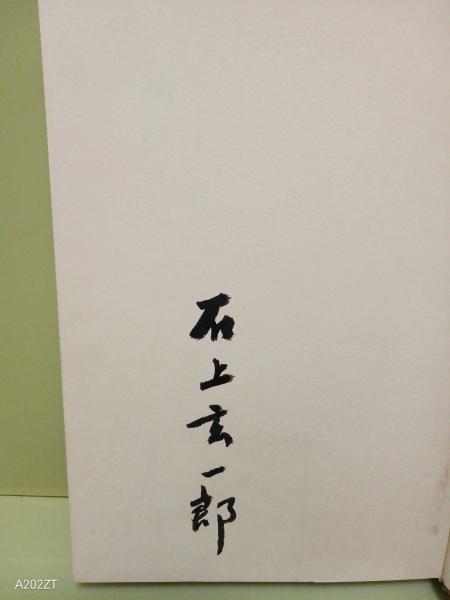 石上玄一郎
A202ZT